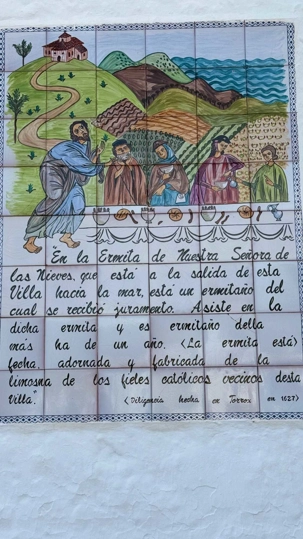 "En la Ermita de Nuestra Señora de
las Nieves, que está a la salida de esta
Villa hacia la mar, está un ermitaño del
cual se recibió juramento. Asiste en la
dicha ermita y es ermitaño della
más ha de un año. <La ermita está>
fecha, adornada y fabricada de la
limosna de los fieles católicos vecinos desta
Villa."
<Diligencia hecha en Torrox en 1627>